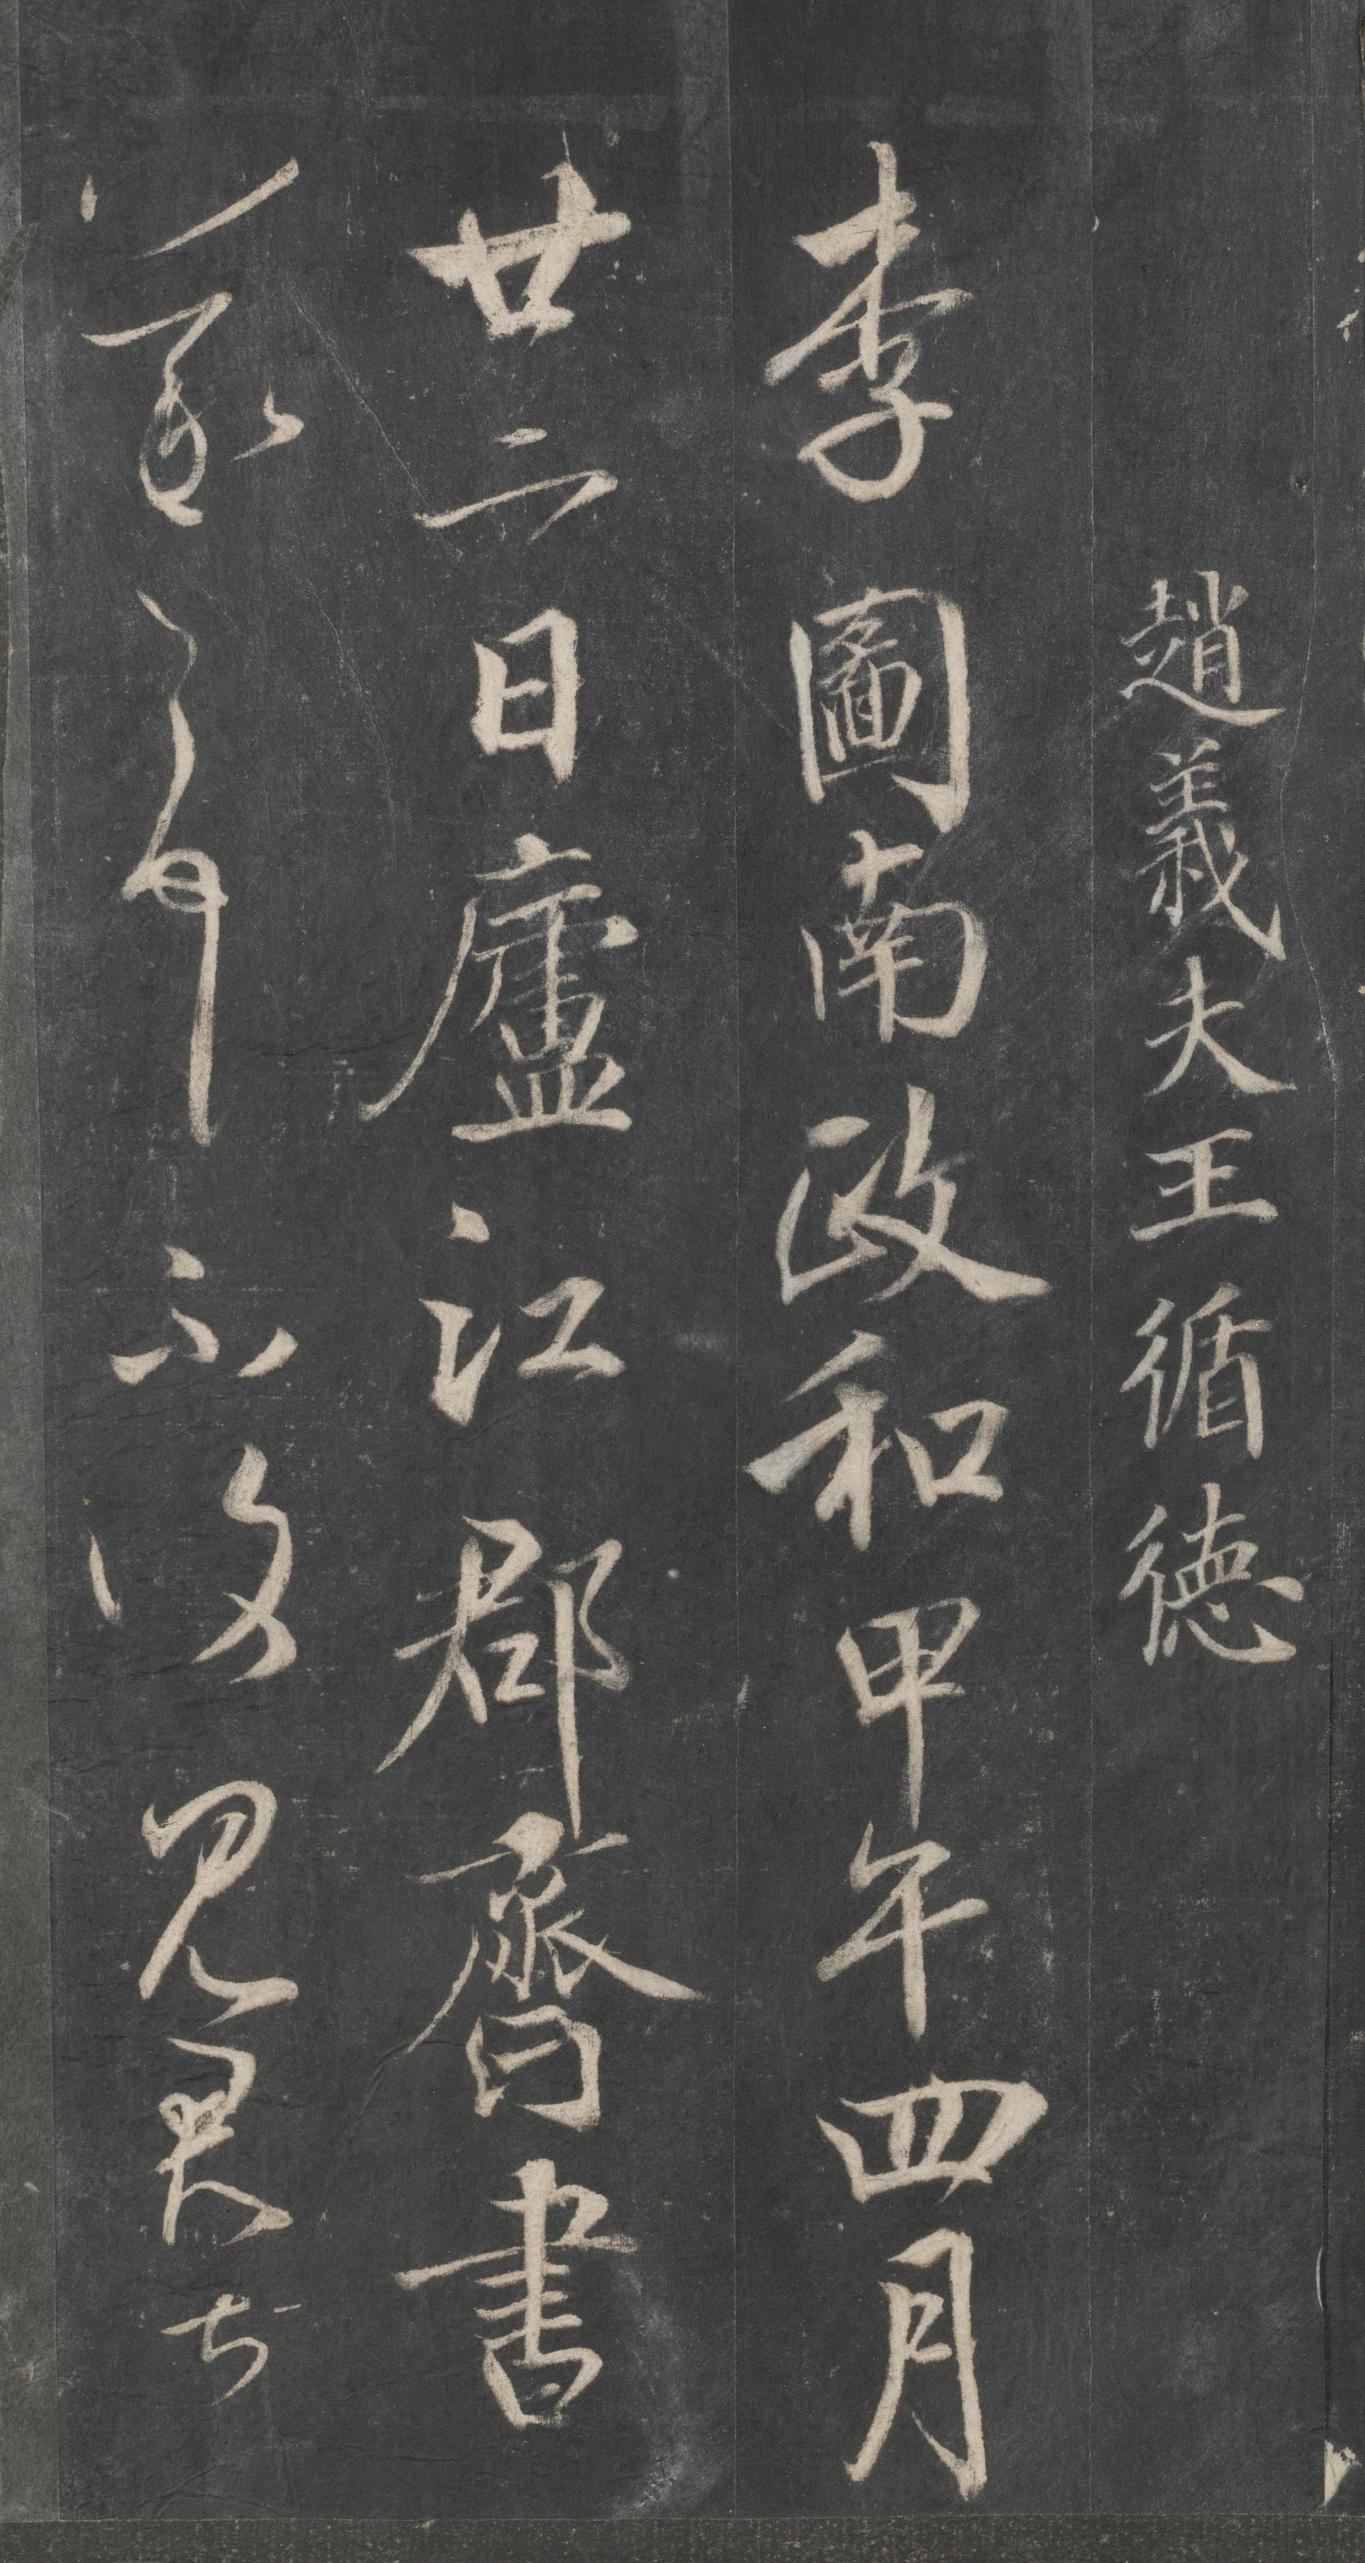 趙義夫王循德
李圖南政和甲午四月
廿六日廬江郡齋書
不復見君